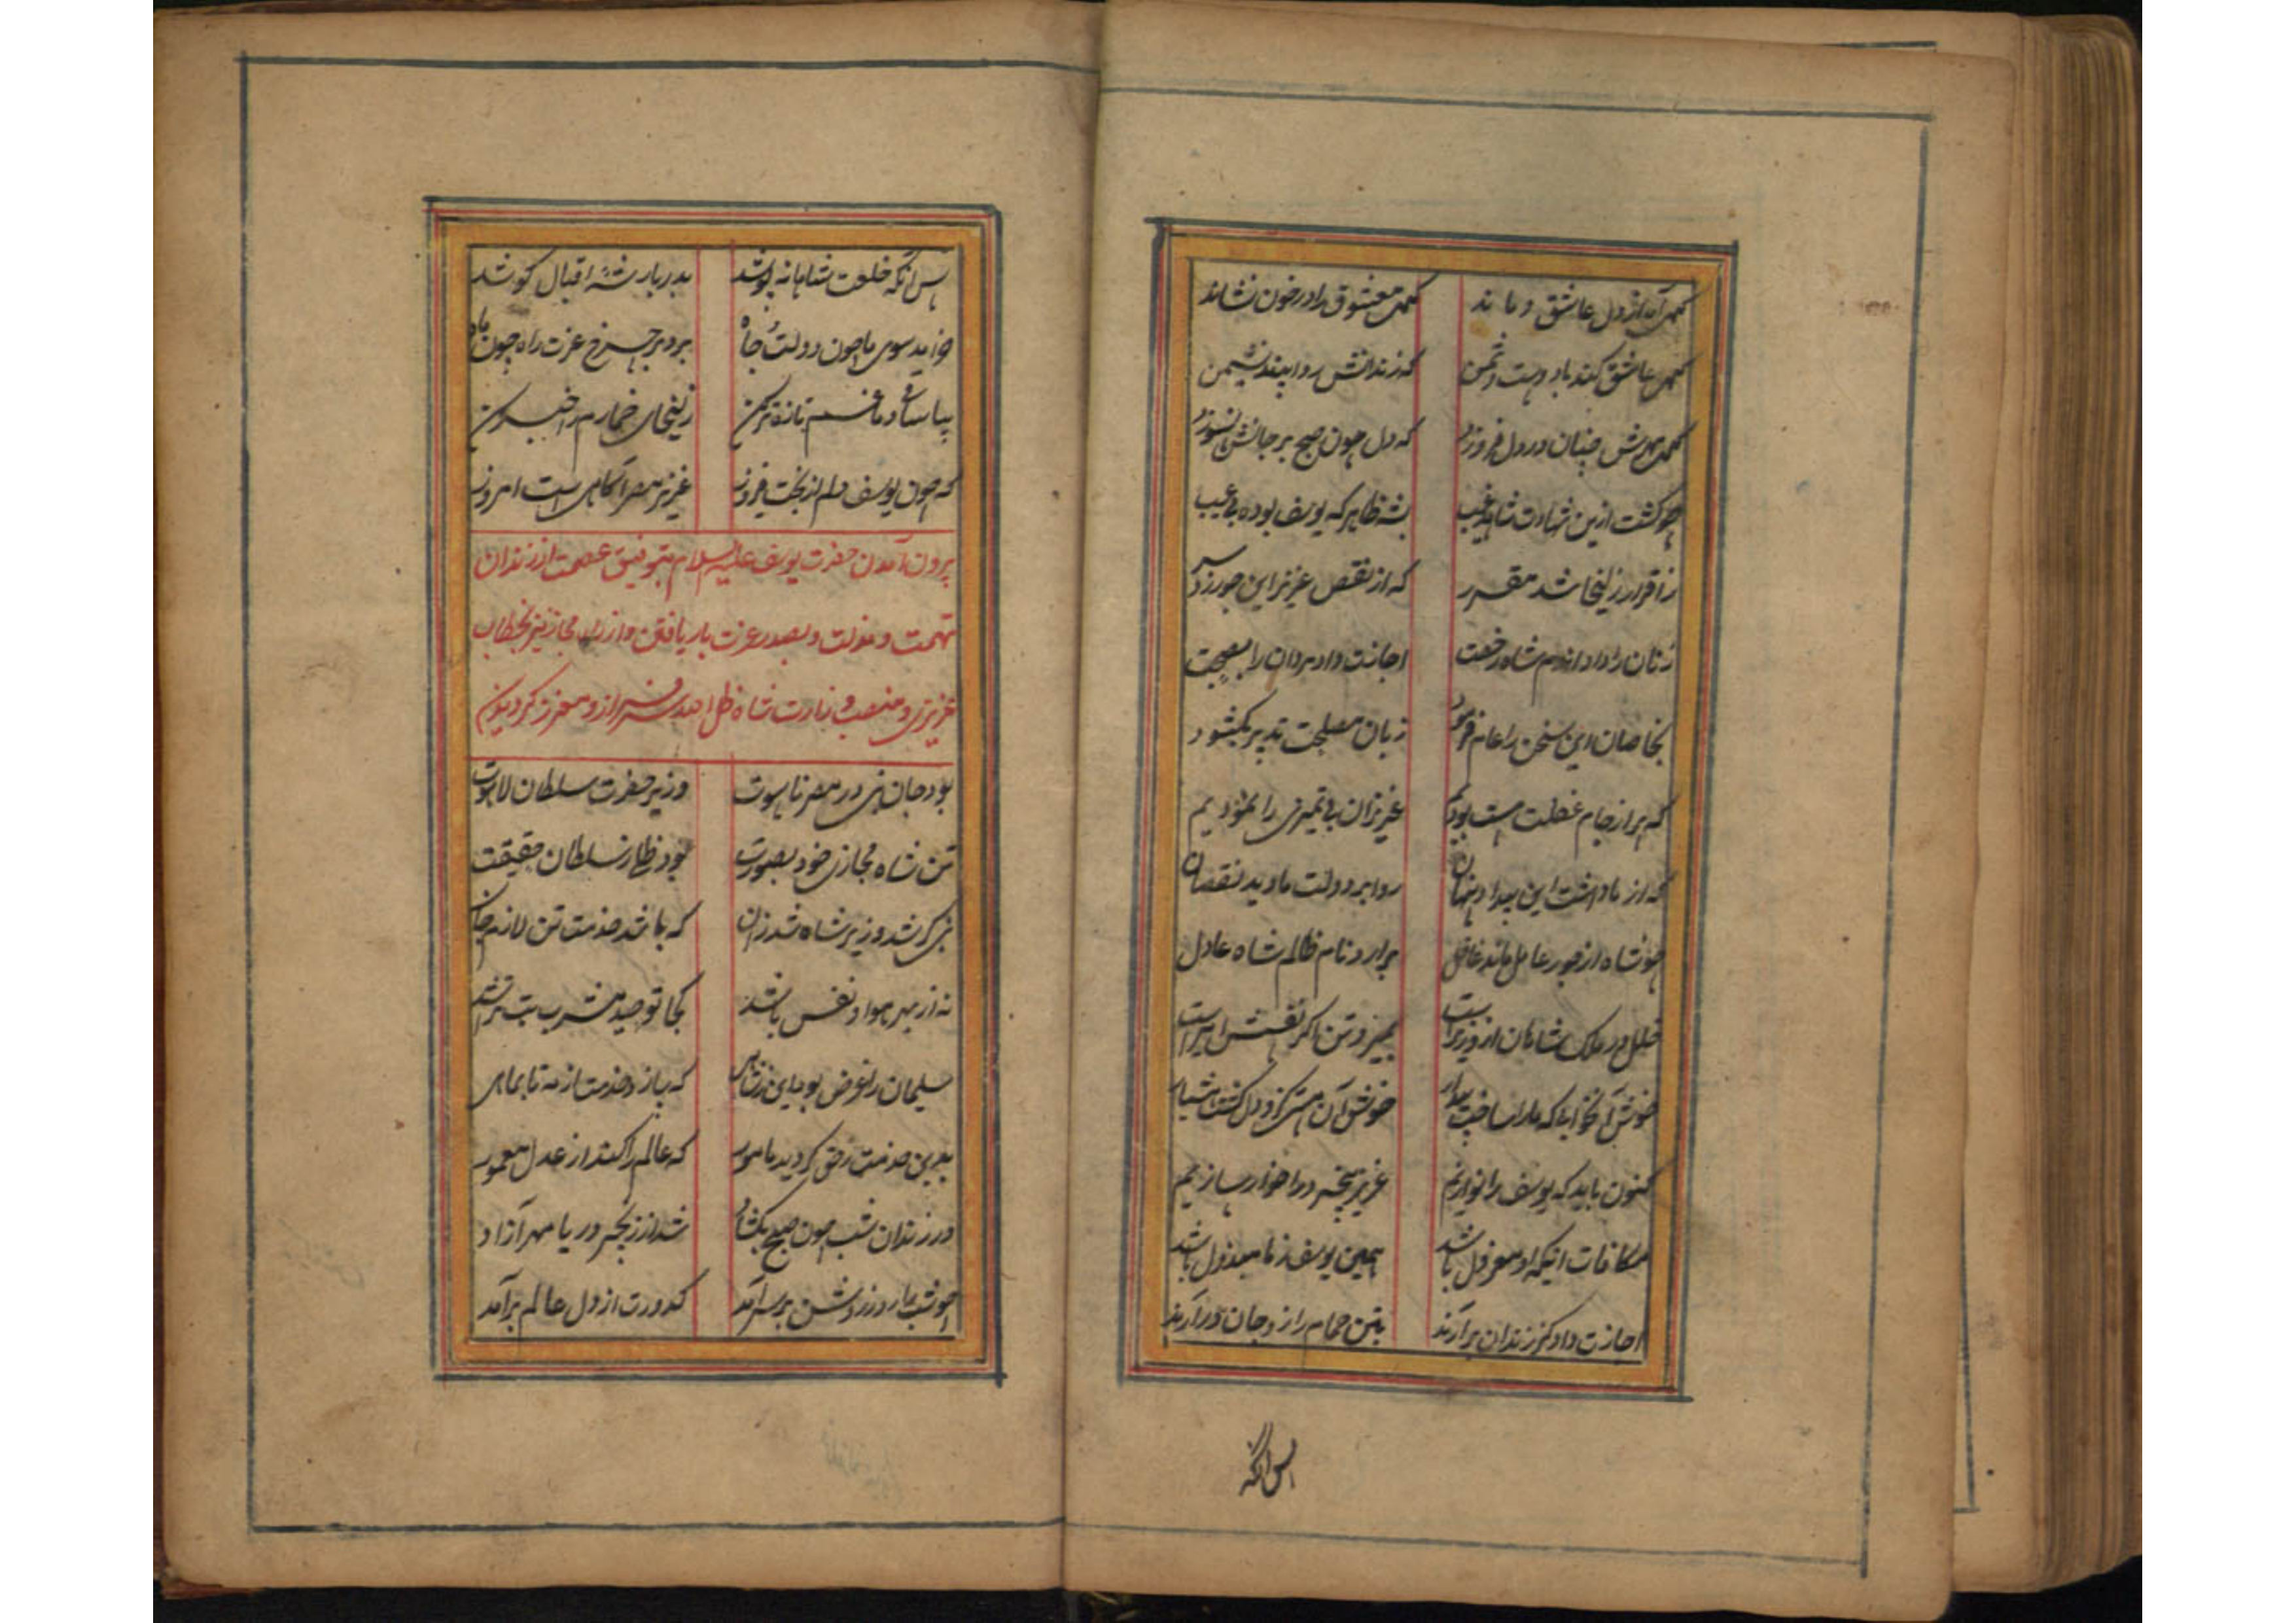 گهی آه از دل عاشق دماند گهی معشوق را در خون نشاند
گهی عاشق کند با دوست دشمن که زندانش روا بیند نشیمن
گهی مهرش چنان در دل فروزد که دل چون صبح بر جانش بسوزد
چو گشت از این شهادت شاهد غیب شه ظاهر که یوسف بوده بی عیب
ز اقرار زلیخا شد مقرر که از نقص عزیز این جور زد سر
زنان را داد اندم شاه رخصت اجازت داد مردان را بصحبت
بخاصان این سخن را عام فرمود زبان مصلحت تدبیر بگشود
که بر از جام غفلت مست بودیم عزیزان بی تمیزی را نمودیم
که از ما داشت این بیداد پنهان روا بر دولت ما دید نقصان
چو شاه از جور عامل ماند غافل برآرد نام ظالم شاه عادل
خلل در ملک شاهان از وزیر است بمیرد تن اگر نفسش امیر است
خوش آنخوابی که ما را ساخت بیدار خوش آن مستی کزو دل گشت هشیار
کنون باید که یوسف را نوازیم عزیز بیخرد را خوار سازیم
مکافات اینکه او معزول باشد همین یوسف ز ما مبذول باشد
اجازت داد کز زندان برآرند بتن حمام را زو جان درآرند
پس آنگه
پس آنگه خلعت شاهانه پوشد بدربار شه اقبال کوشد
خراید سوی ما چون دولت و جاه برد بر چرخ عزت راه چون ماه
بیا ساقی دماغم تازه تر کن زلیخای خمارم را خبر کن
که چون یوسف دلم از بخت فیروز عزیز مصر آگاهی است امروز
برون آمدن حضرت یوسف علیه السلام بتوفیق عصمت از زندان
تهمت و مذلت و بصدر عزت بار یافتن و از مجاز نیز بخطاب
عزیزی و منصب وزارت شاه ظل احدی سرافراز و معزز گردیدن
بود جان نبی در مصر ناسوت وزیر حضرت سلطان لاهوت
تن شاه مجازی خود بصورت بود ظل از سلطان حقیقت
نبی گر شد وزیر شاه شد زان که باشد خدمت تن لازم جان
نه از بهر هوا و نفس باشد کجا توحید مشرب بت تراشد
سلیمان را غرض بود این ز شاهی که یازد خدمت از مه تا بماهی
بدین خدمت ز حق گردید مامور که عالم را کند از عدل معمور
در زندان شب چون صبح بگشاد شد از زنجیر دریا مهر آزاد
چو شب را روز روشن بر سر آمد کدورت از دل عالم برآمد